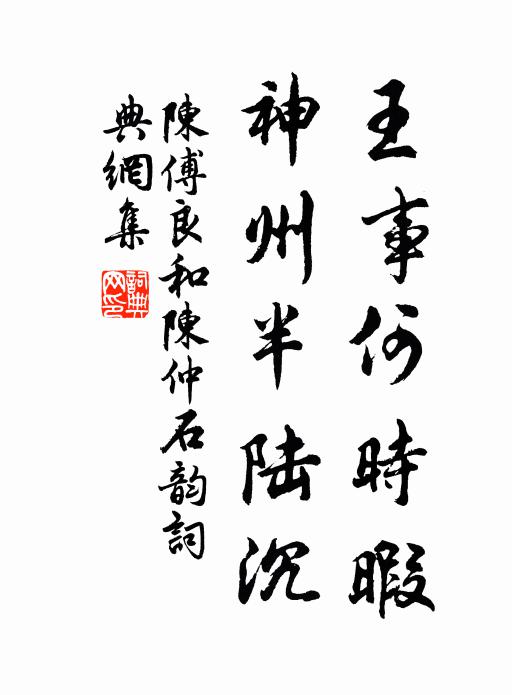 王事何時暇
神州半陆沉
陳傅良和陳仲石韵詞
典網集
詞典网印